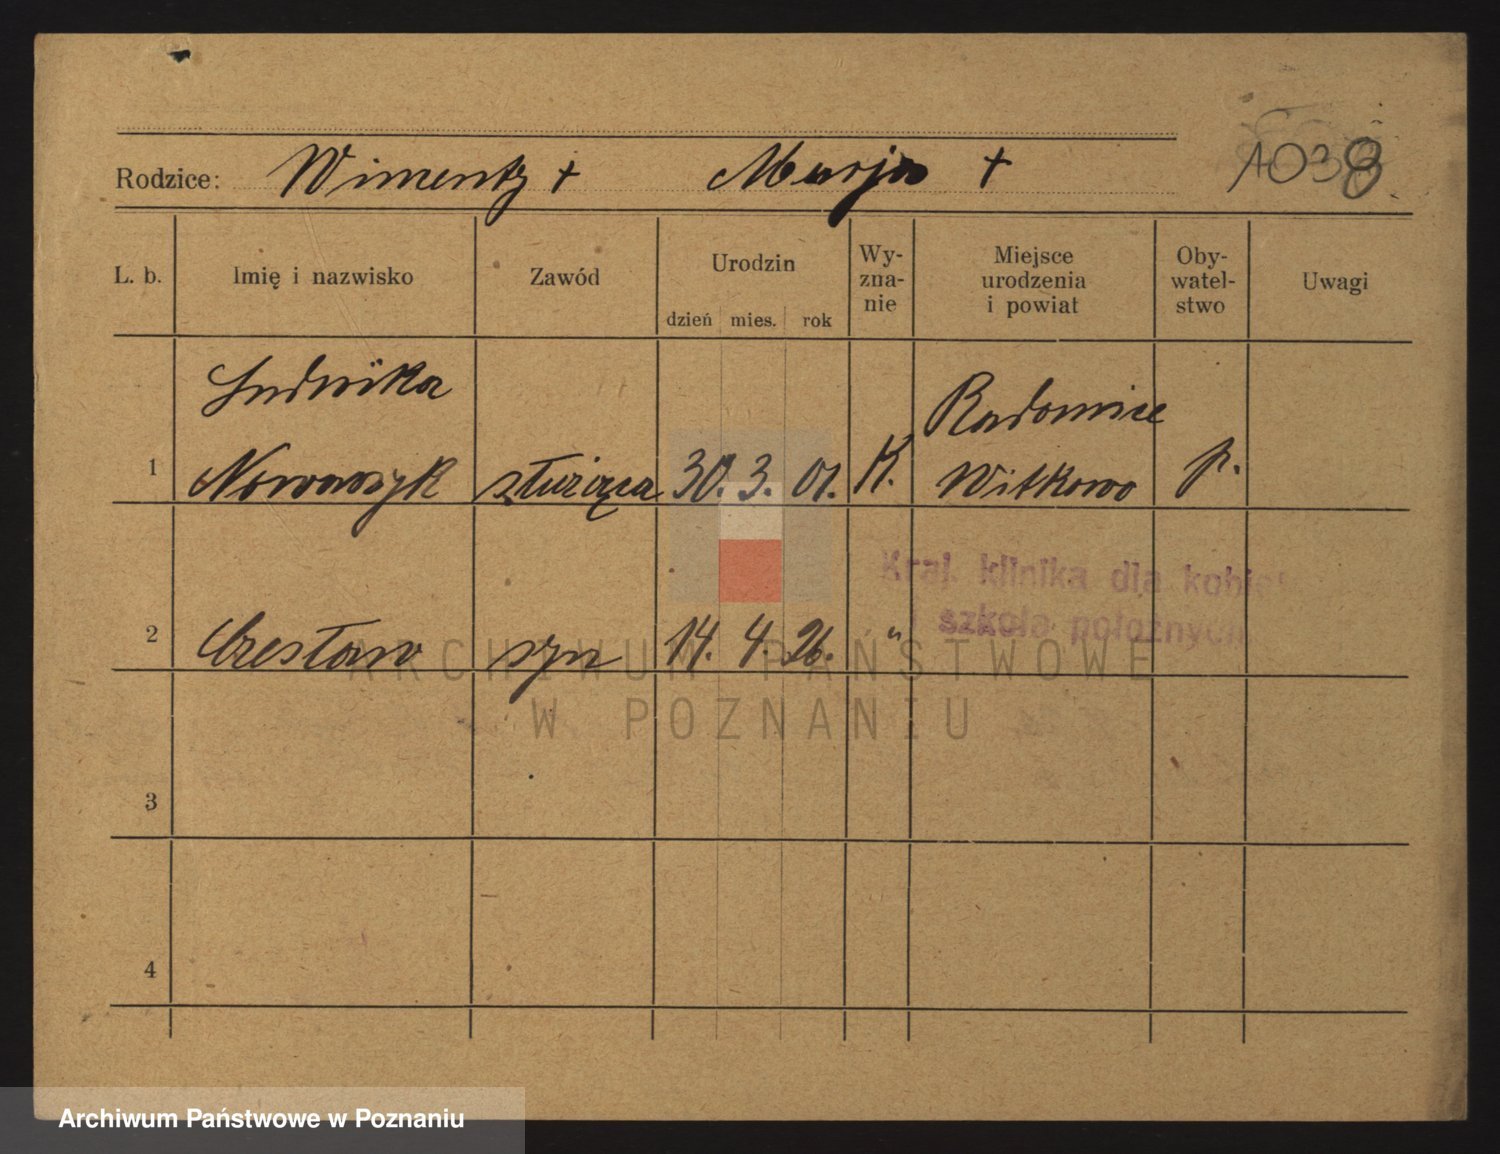 Rodzice: Wincenty + Marja + 1038
L. b. Imię i nazwisko Zawód Urodzin dzień mies. rok Wy-zna-nie Miejsce urodzenia i powiat Oby-watel-stwo Uwagi
Ludwika Radomice
1 Nowaczyk służąca 30. 3. 01. K. Witkowo p.
Kraj. klinika dla kobiet
i szkoła położnych
2 Czesław syn 14. 4. 26. "
ARCHIWUM PAŃSTWOWE
W POZNANIU
3
4
Archiwum Państwowe w Poznaniu